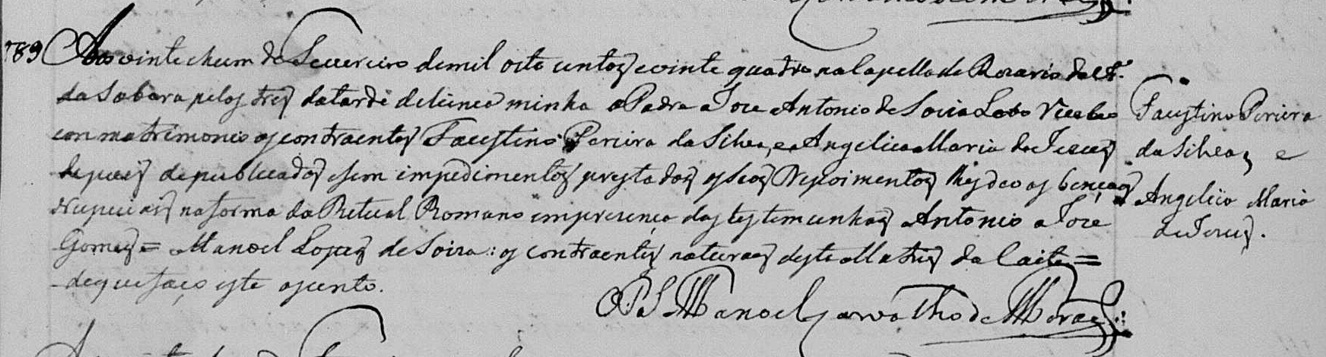 789 Aos vinte ehum de Fevereiro demil oito centos evinte quadro nalapella do Rozario da
da Sabara pelos tres datarde delicença minha o Padre Jose Antonio de Soiza Lobo recebeo
con matrimonio os contraentes Faustino Pereira da Silva, e Angelica Maria de Jesus
depois depublicados esem impedimentos prestados os seos Depoimentos lhes deo as bençaos
Nupciais naforma do Ritual Romano empresença das testemunhas Antonio Jose
Gomes = Manoel Lopes de Soiza: os contraentes naturaes desta Matris da Caite =
dequefaço este asento.
O P. Manoel Carvalho de Moraes
Faustino Pereira
da Silva, e
Angelica Maria
de Jesus.